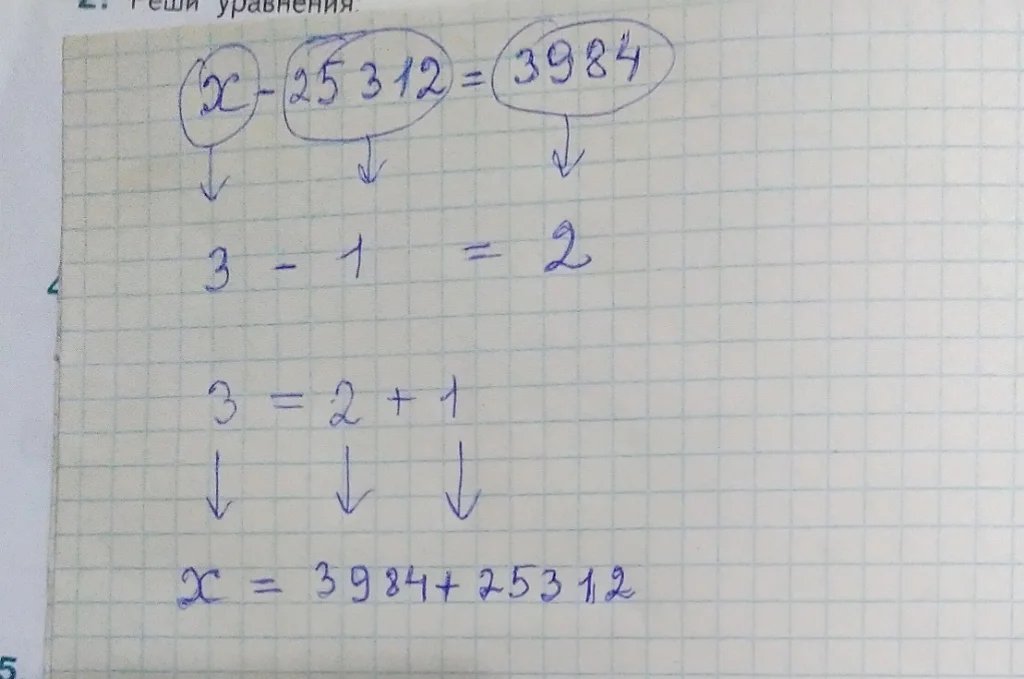 2. Реши уравнения.
x - 25312 = 3984
3 - 1 = 2
3 = 2 + 1
x = 3984 + 25312
5